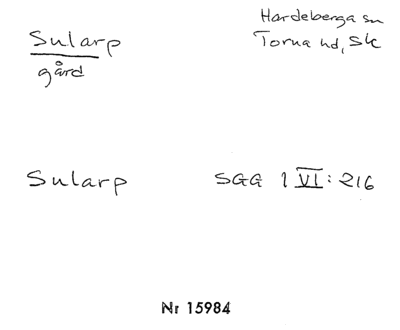 Sularp
gård
Hardeberga sn
Torna hd, Sk
Sularp SGG 1 VI: 216
Nr 15984